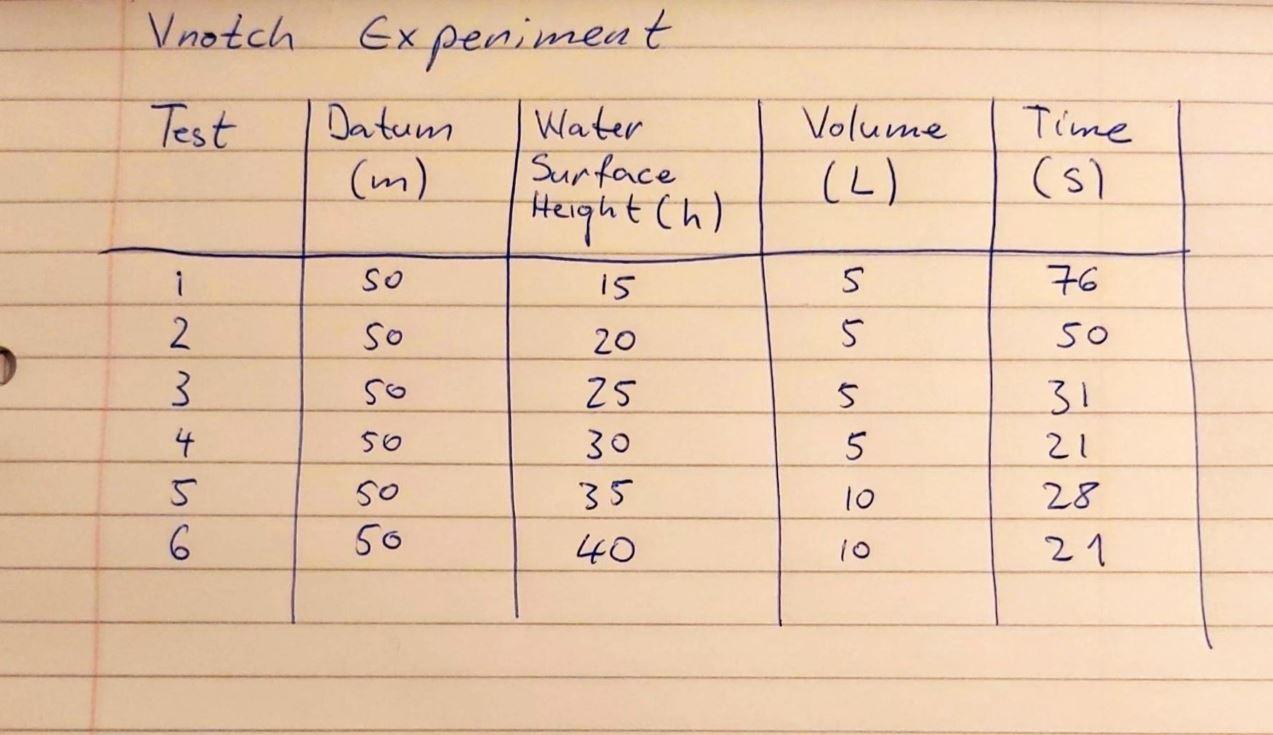 Vnotch Experiment
Test Datum (m) Water Surface Height (h) Volume (L) Time (s)
1 50 15 5 76
2 50 20 5 50
3 50 25 5 31
4 50 30 5 21
5 50 35 10 28
6 50 40 10 21